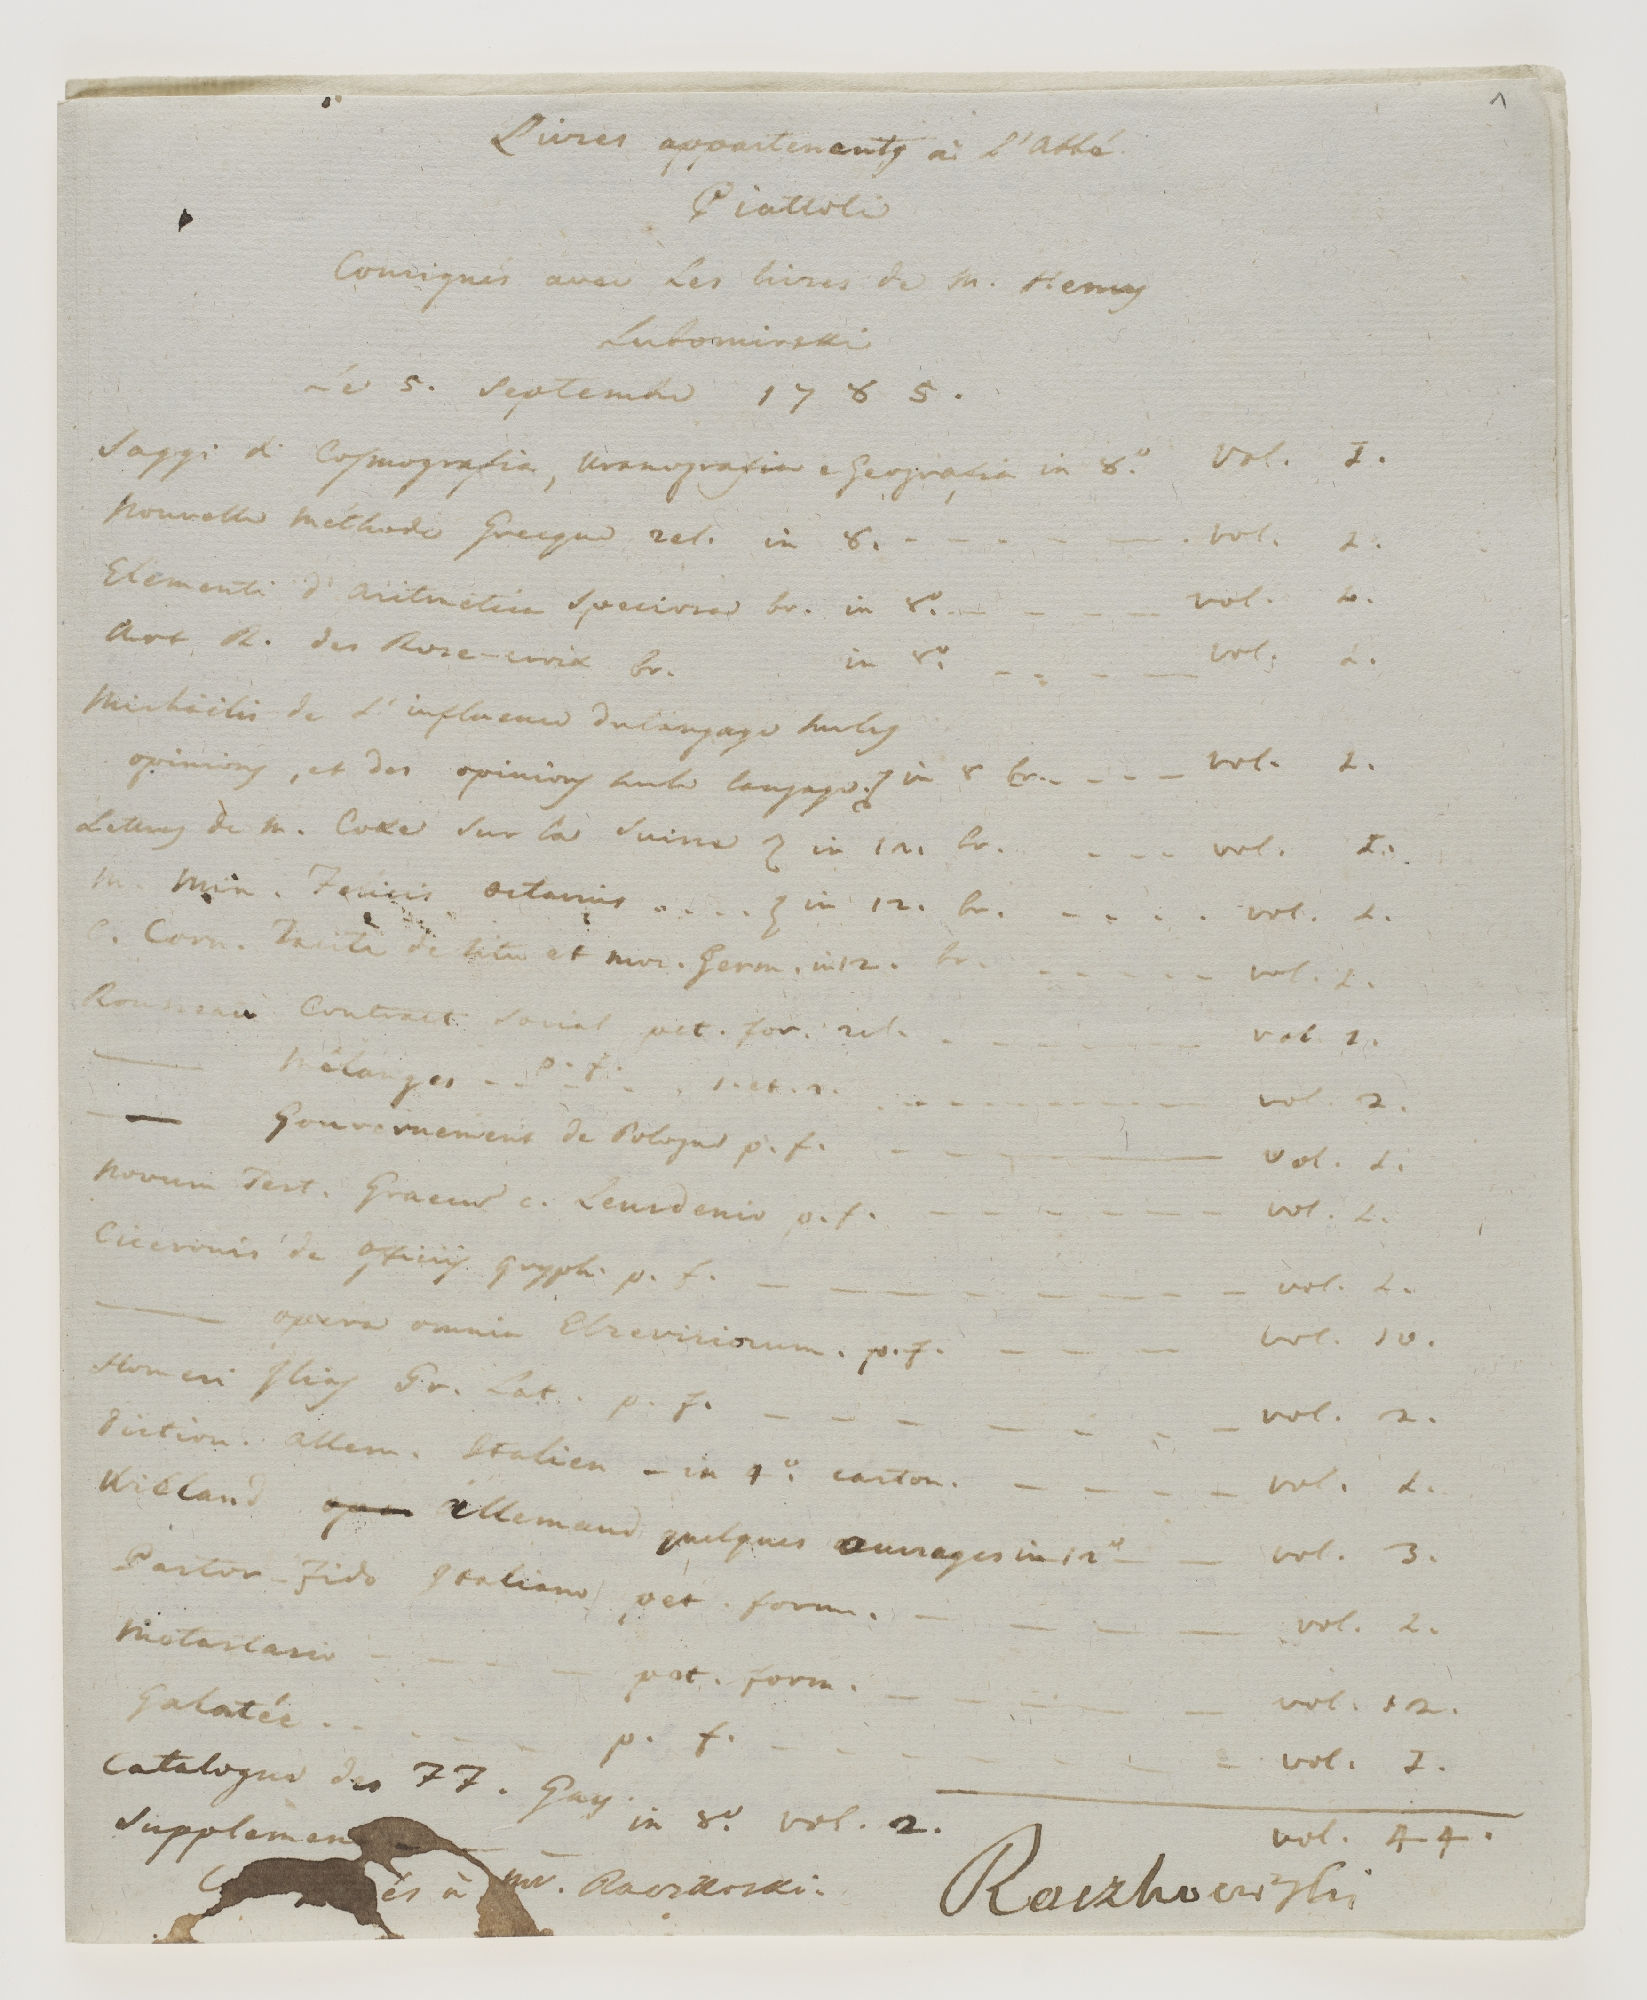 Livres appartenants à L'Abbé
Piattoli
Consignés avec Les livres de M. Henry
Lubomirski
Le 5. Septembre 1785.
Saggi di Cosmografia, Uranografia e Geografia in 8.º Vol. 1.
Nouvelle Méthode Grecque rel. in 8. - - - - - - vol. 1.
Elementi d'aritmetica speciosa br. in 8º. - - - - vol. 1.
Art R. des Rose-croix br. in 8º. - - - - vol. 1.
Michaëlis de L'influence du langage sur les
opinions, et des opinions sur le langage. } in 8 br. - - - vol. 1.
Lettres de M. Coxe Sur la Suisse } in 12. br. - - - vol. 1.
M. Min. Felicis Octavius . . . . } in 12. br. - - - - vol. 1.
C. Corn. Taciti de situ et mor. Germ. in 12. br. - - - - - vol. 1.
Rousseau Contract Social pet. for. rel. - - - - - vol 1.
—— Mélanges - - p. f. - . 1. et. 2. - - - - - - vol 2.
—— Gouvernement de Pologne p. f. - - —— vol. 1.
Novum Test. Graecum c. Leusdenio p. f. - - - - - - vol. 1.
Ciceronis de Officiis Gryph. p. f. - - - - - - - vol. 1.
—— opera omnia Elzeviriorum. p. f. - - - - vol. 10.
Homeri Ilias Gr. Lat. p. f. - - - - - - - vol. 2.
Diction. allem. Italien - in 4º. carton. - - - - - vol. 1.
Wieland allemand quelques ouvrages in 12º - - vol. 3.
Pastor Fido Italiano pet. form. - - - - vol. 1.
Metastasio - - - - pet. form. - - - - - vol. 12.
Galatée . . - - - - p. f. - - - - - - - vol. 1.
Catalogue des 77. Gay.
Supplemen in 8º. vol. 2. vol. 44.
és à Mr. Raczkoski. Raczkowski